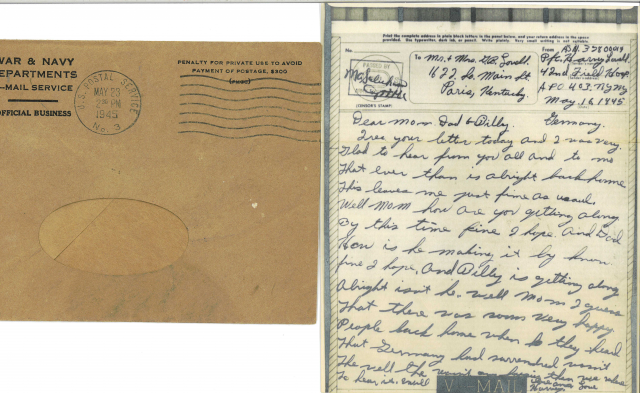 WAR & NAVY
DEPARTMENTS
V-MAIL SERVICE
OFFICIAL BUSINESS
U.S. POSTAL SERVICE
MAY 23
PM
1945
No. 3
PENALTY FOR PRIVATE USE TO AVOID
PAYMENT OF POSTAGE, $300
Print the complete address in plain block letters in the panel below, and your return address in the space
provided. Use typewriter, dark ink, or pencil. Write plainly. Very small writing is not suitable.
No.
PASSED BY
(CENSOR'S STAMP)
To Mr. & Mrs.
1622 So. Main St
Paris, Kentucky.
From
Pfc. Harry
42nd Field Hosp.
A P O 403. N.Y. N.Y.
May. 16, 1945
Germany.
Dear Mom Dad & Billy.
I rec your letter today and I was very
Glad to hear from you all and to
That ever than is alright back home
This leaves me just fine as usual.
Well Mom how are you getting along
By this time fine I hope. And Dad
How is he making it by know
fine I hope. And Billy is getting along
alright isn't he. well Mom I guess
That there was some very happy
People back home when they heard
That Germany had surrendred wasn't
The well the wasn't any than we were
To hear it.
V-MAIL
Love